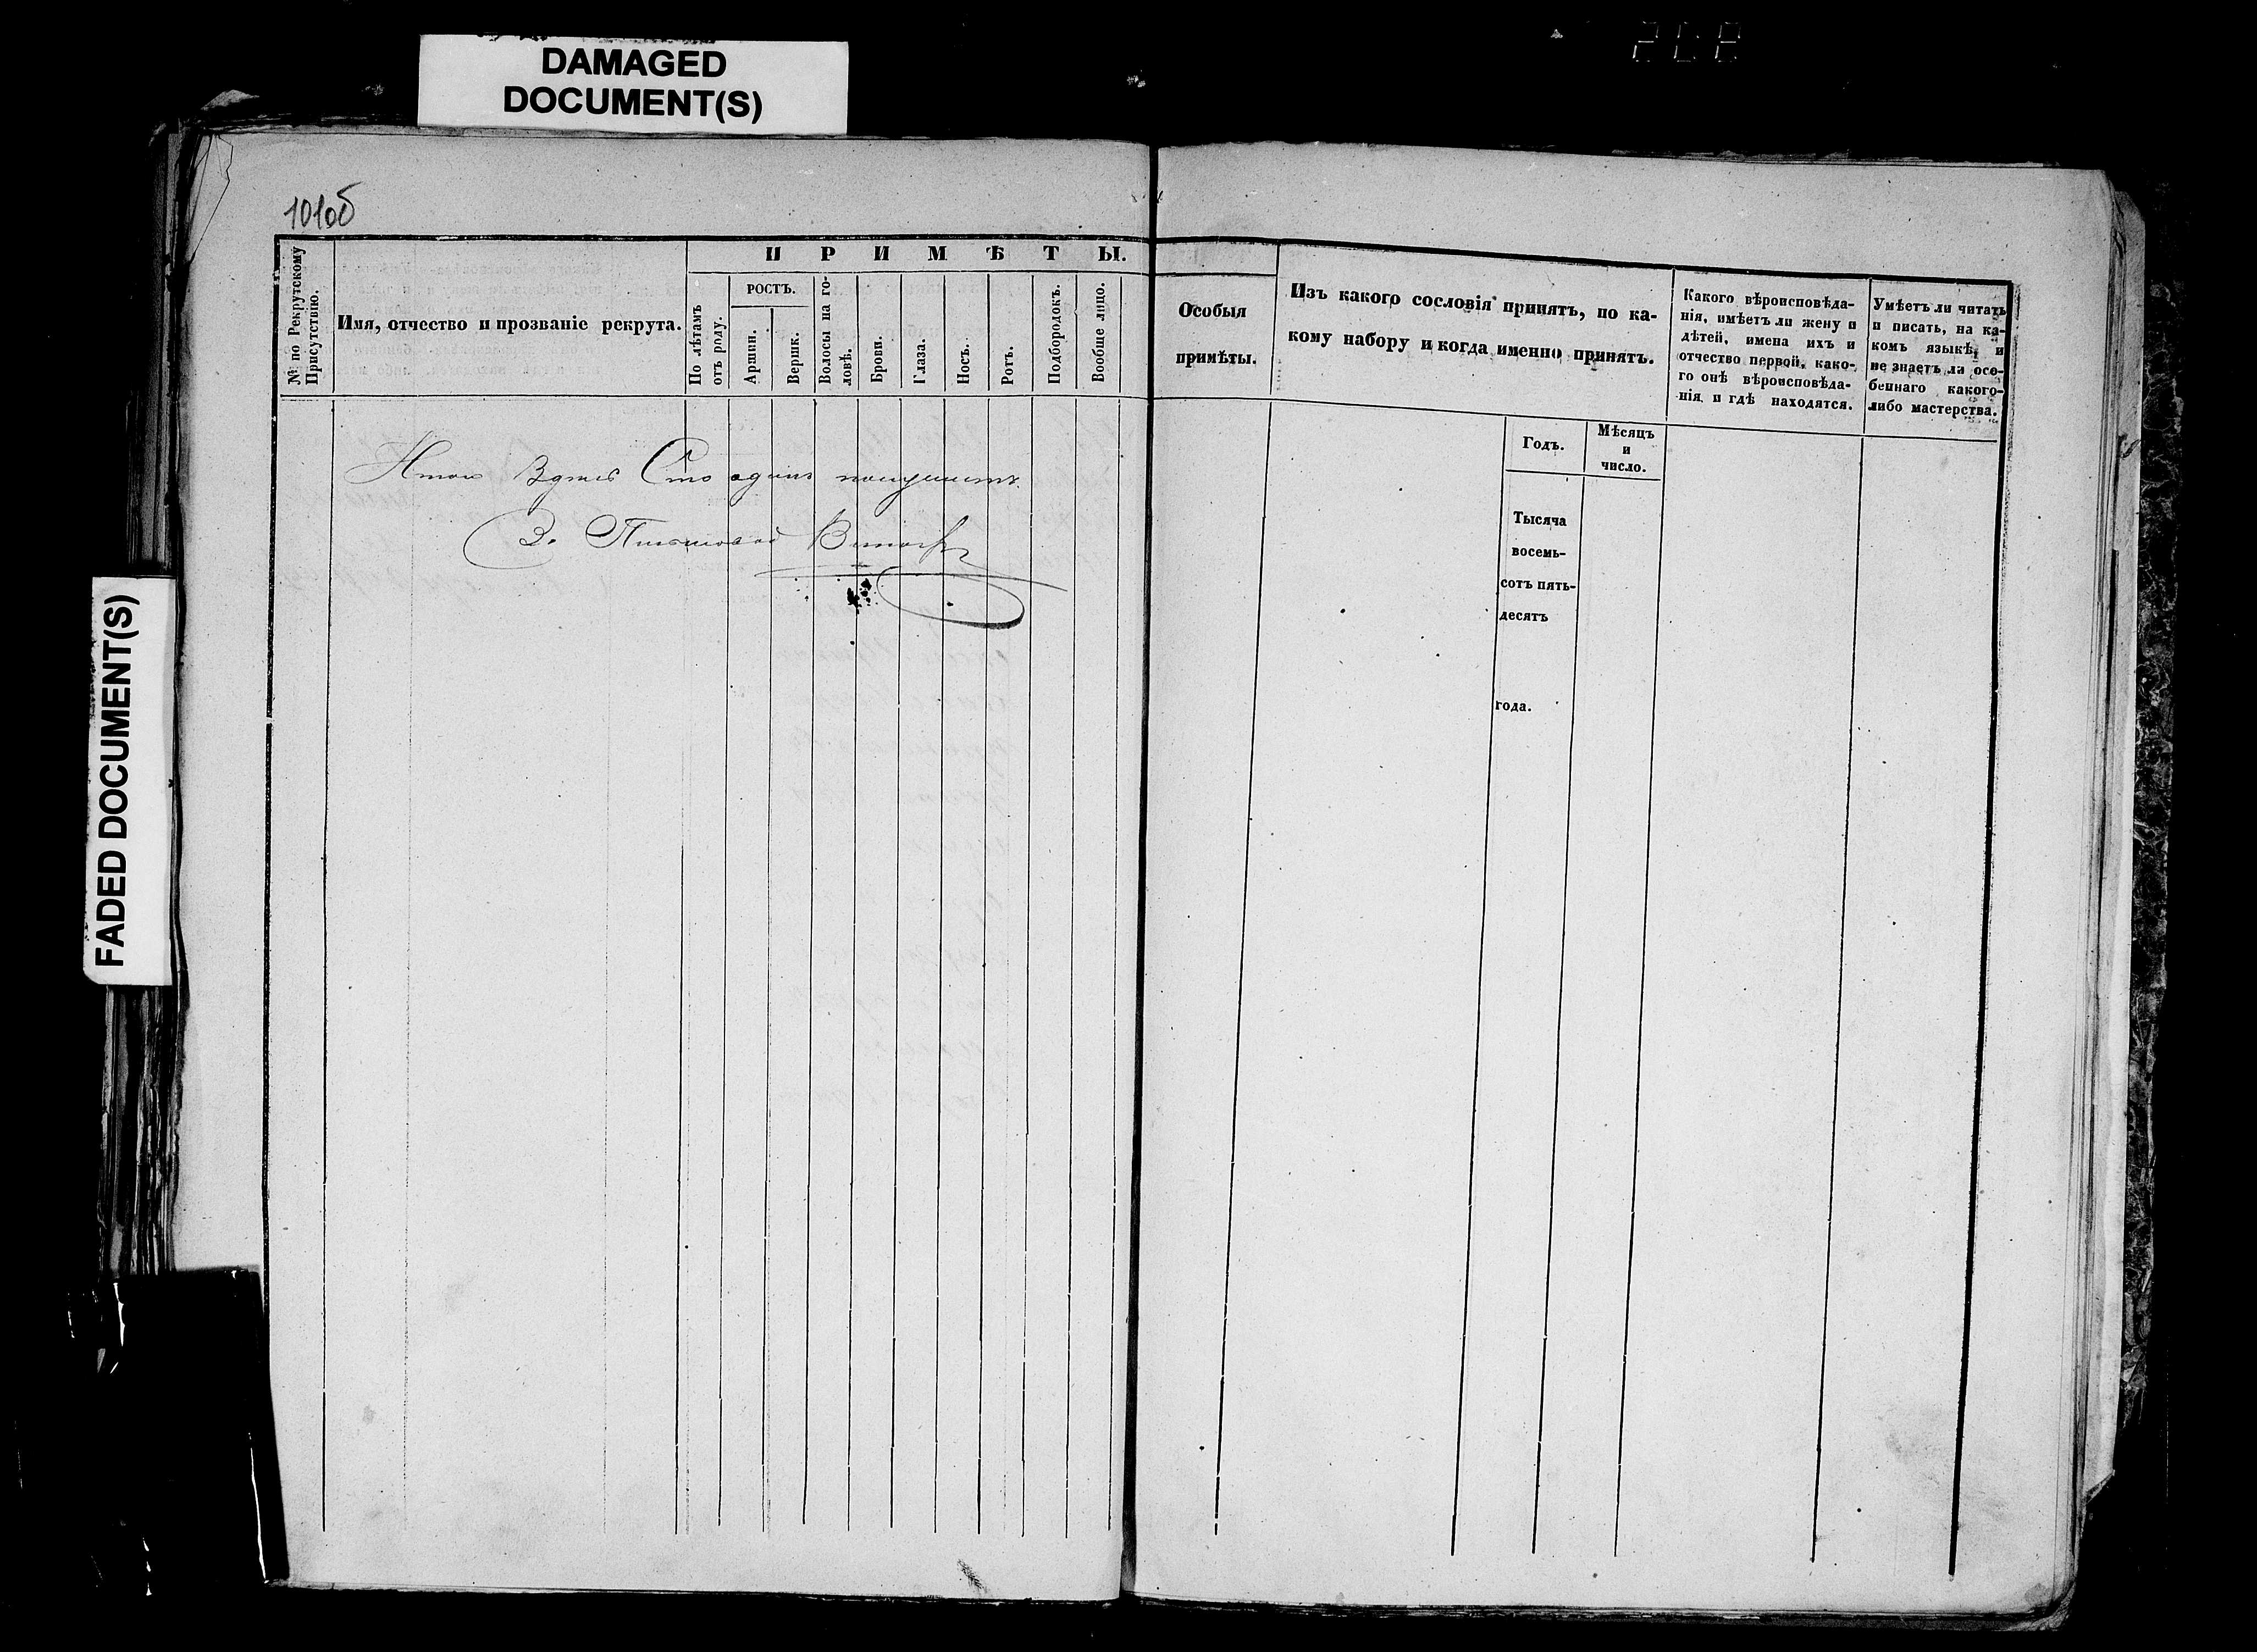 DAMAGED
DOCUMENT(S)
FADED DOCUMENT(S)
101об
№ по Рекрутскому
Присутствію.
Имя, отчество и прозваніе рекрута.
ПРИМѢТЫ.
По лѣтамъ
отъ роду.
РОСТЪ.
Аршин.
Вершк.
Волосы на го-
ловѣ.
Брови.
Глаза.
Носъ.
Ротъ.
Подбородокъ.
Вообще лицо.
Особыя
примѣты.
Изъ какого сословія принятъ, по ка-
кому набору и когда именно принятъ.
Годъ.
Мѣсяцъ
и
число.
Какого вѣроисповѣда-
нія, имѣетъ ли жену и
дѣтей, имена ихъ и
отчество первой, како-
го онѣ вѣроисповѣда-
нія и гдѣ находятся.
Умѣетъ ли читать
и писать, на ка-
комъ языкѣ, и
не знаетъ ли осо-
беннаго какого-
либо мастерства.
Итого Здесь Сто одинъ
З. Письмовод
Тысяча
восемь-
сотъ пять-
десятъ
года.